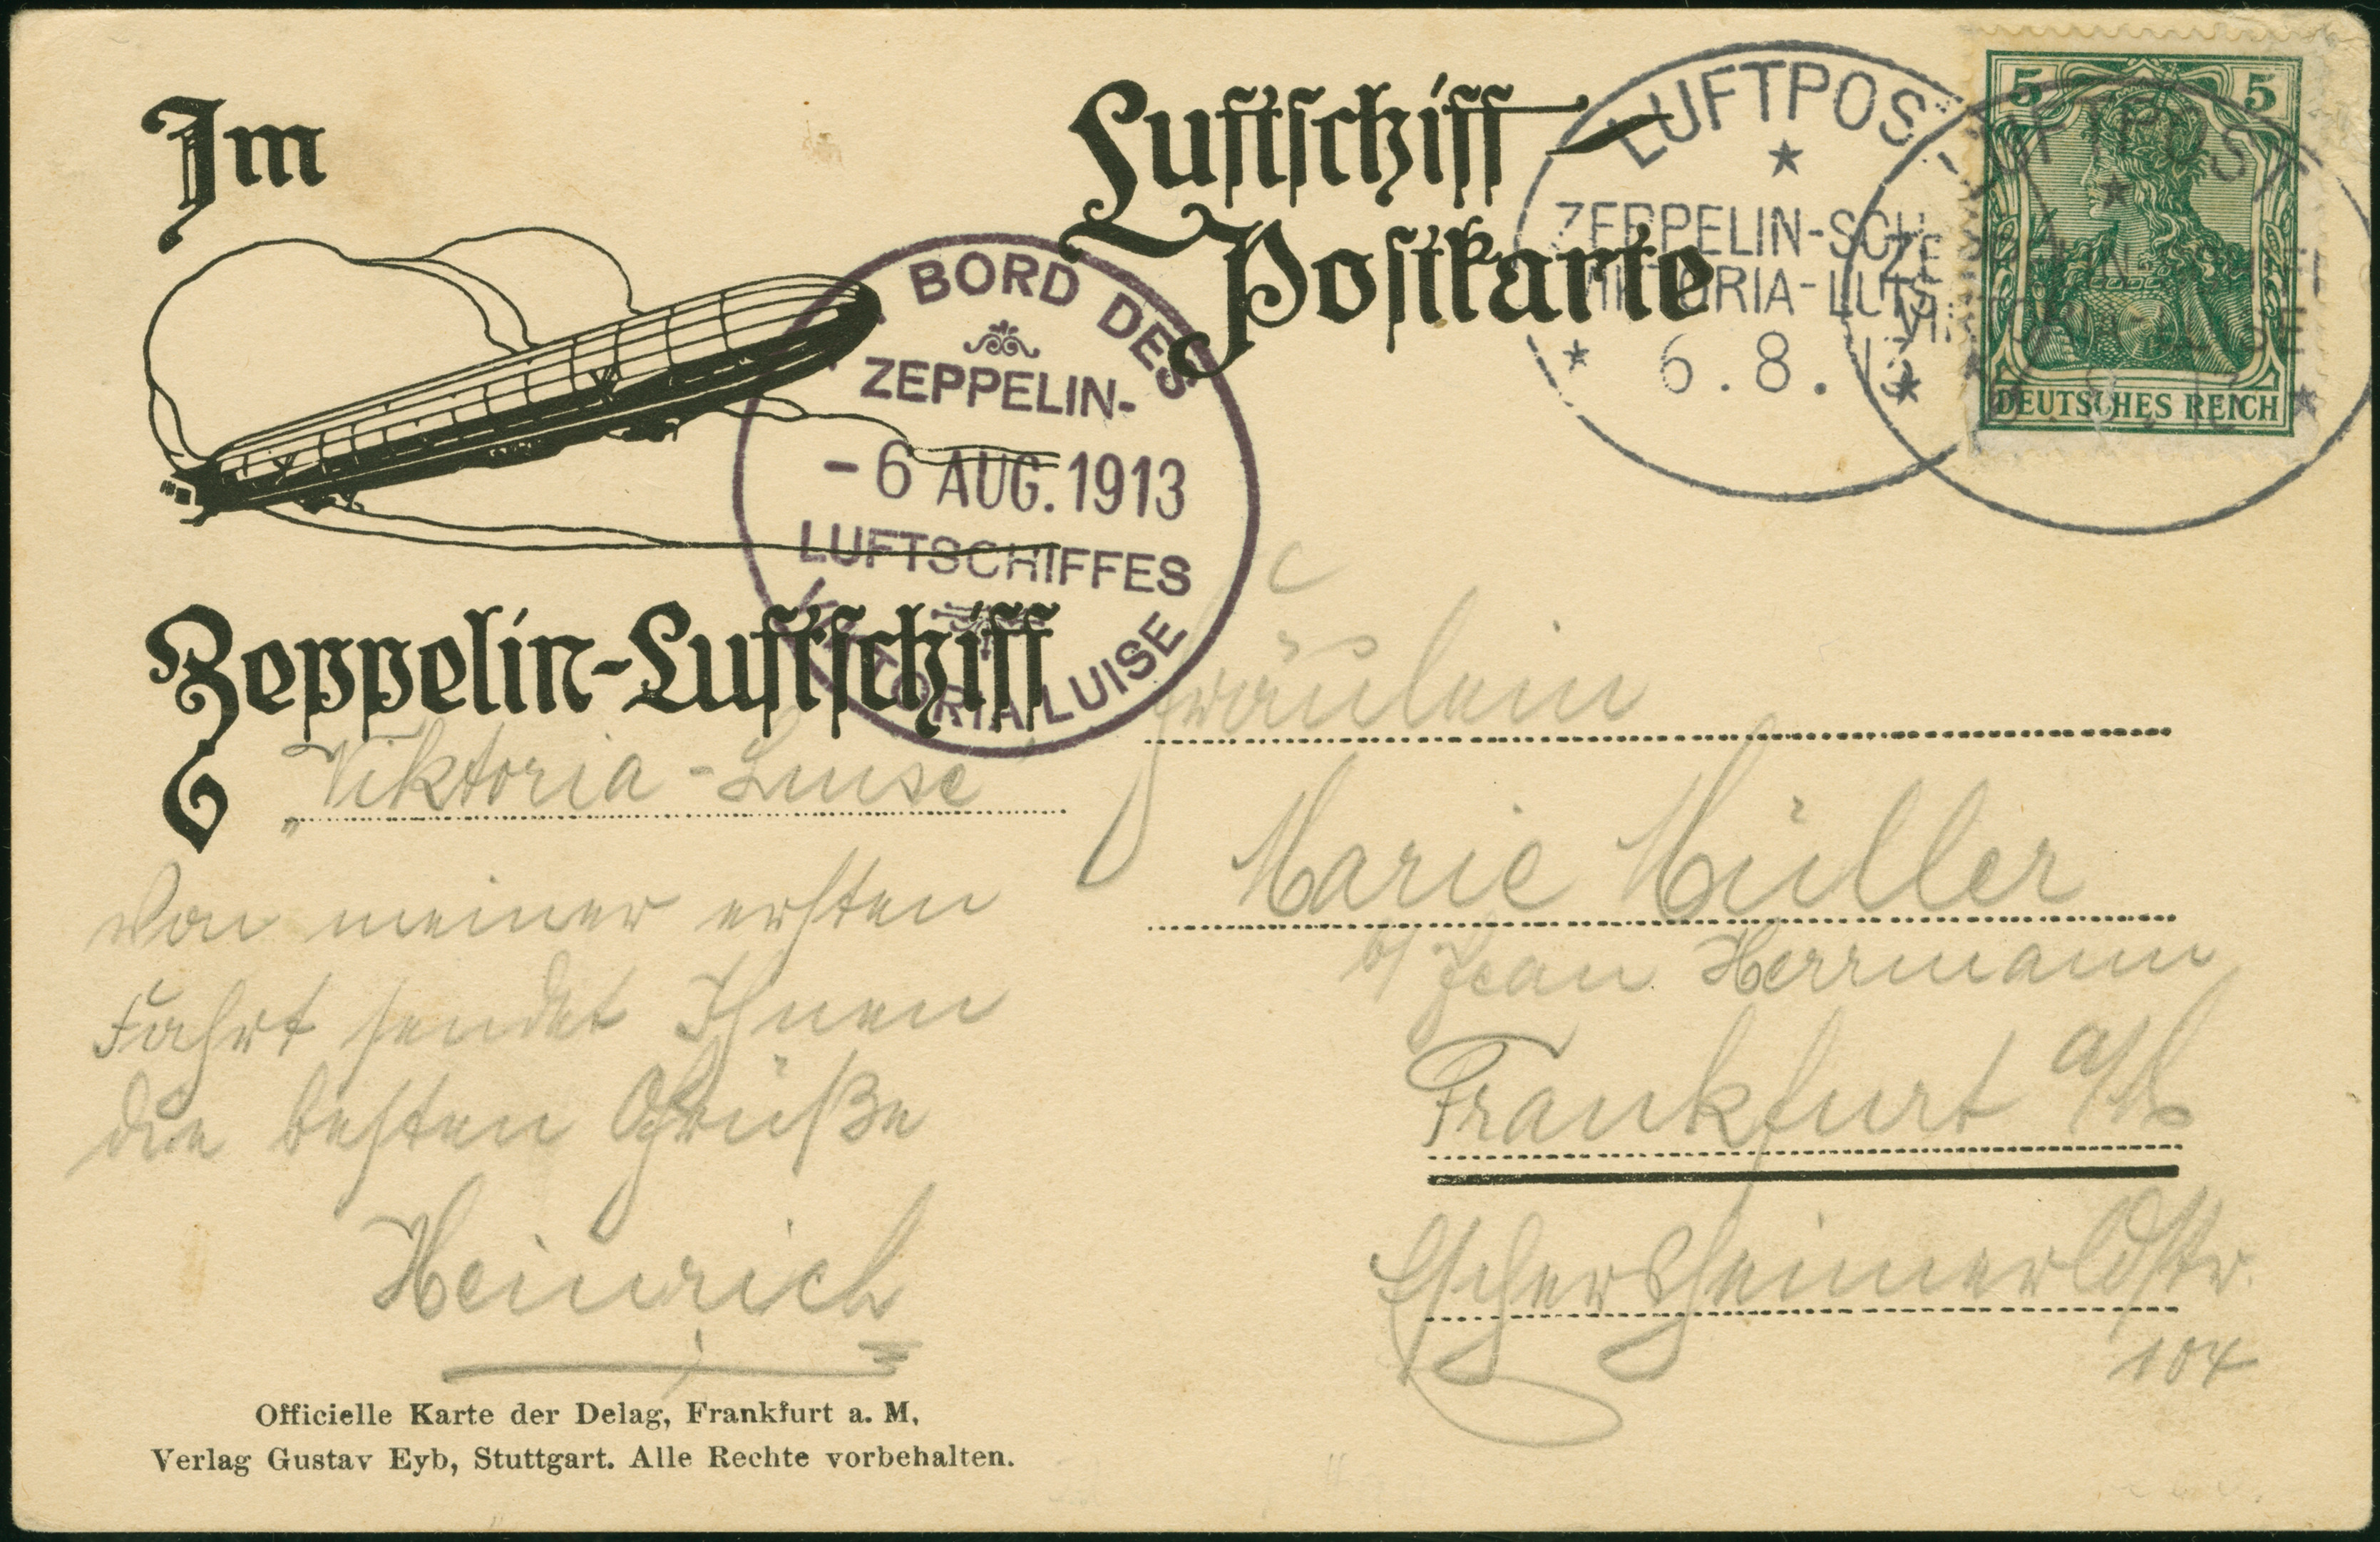 Im
Luftschiff
Postkarte
LUFTPOST
ZEPPELIN-SCH
VIKTORIA-LUISE
6.8.13
LUFTPOST
5 5
DEUTSCHES REICH
BORD DES
ZEPPELIN-
-6 AUG. 1913
LUFTSCHIFFES
VIKTORIA LUISE
Zeppelin-Luftschiff
„Viktoria-Luise“
Von meiner ersten
Fahrt sendet Ihnen
die besten Grüße
Heinrich
Fräulein
Marie Müller
b/ Jean Herrmann
Frankfurt a/M
Eschersheimerldstr.
104
Officielle Karte der Delag, Frankfurt a. M.
Verlag Gustav Eyb, Stuttgart. Alle Rechte vorbehalten.